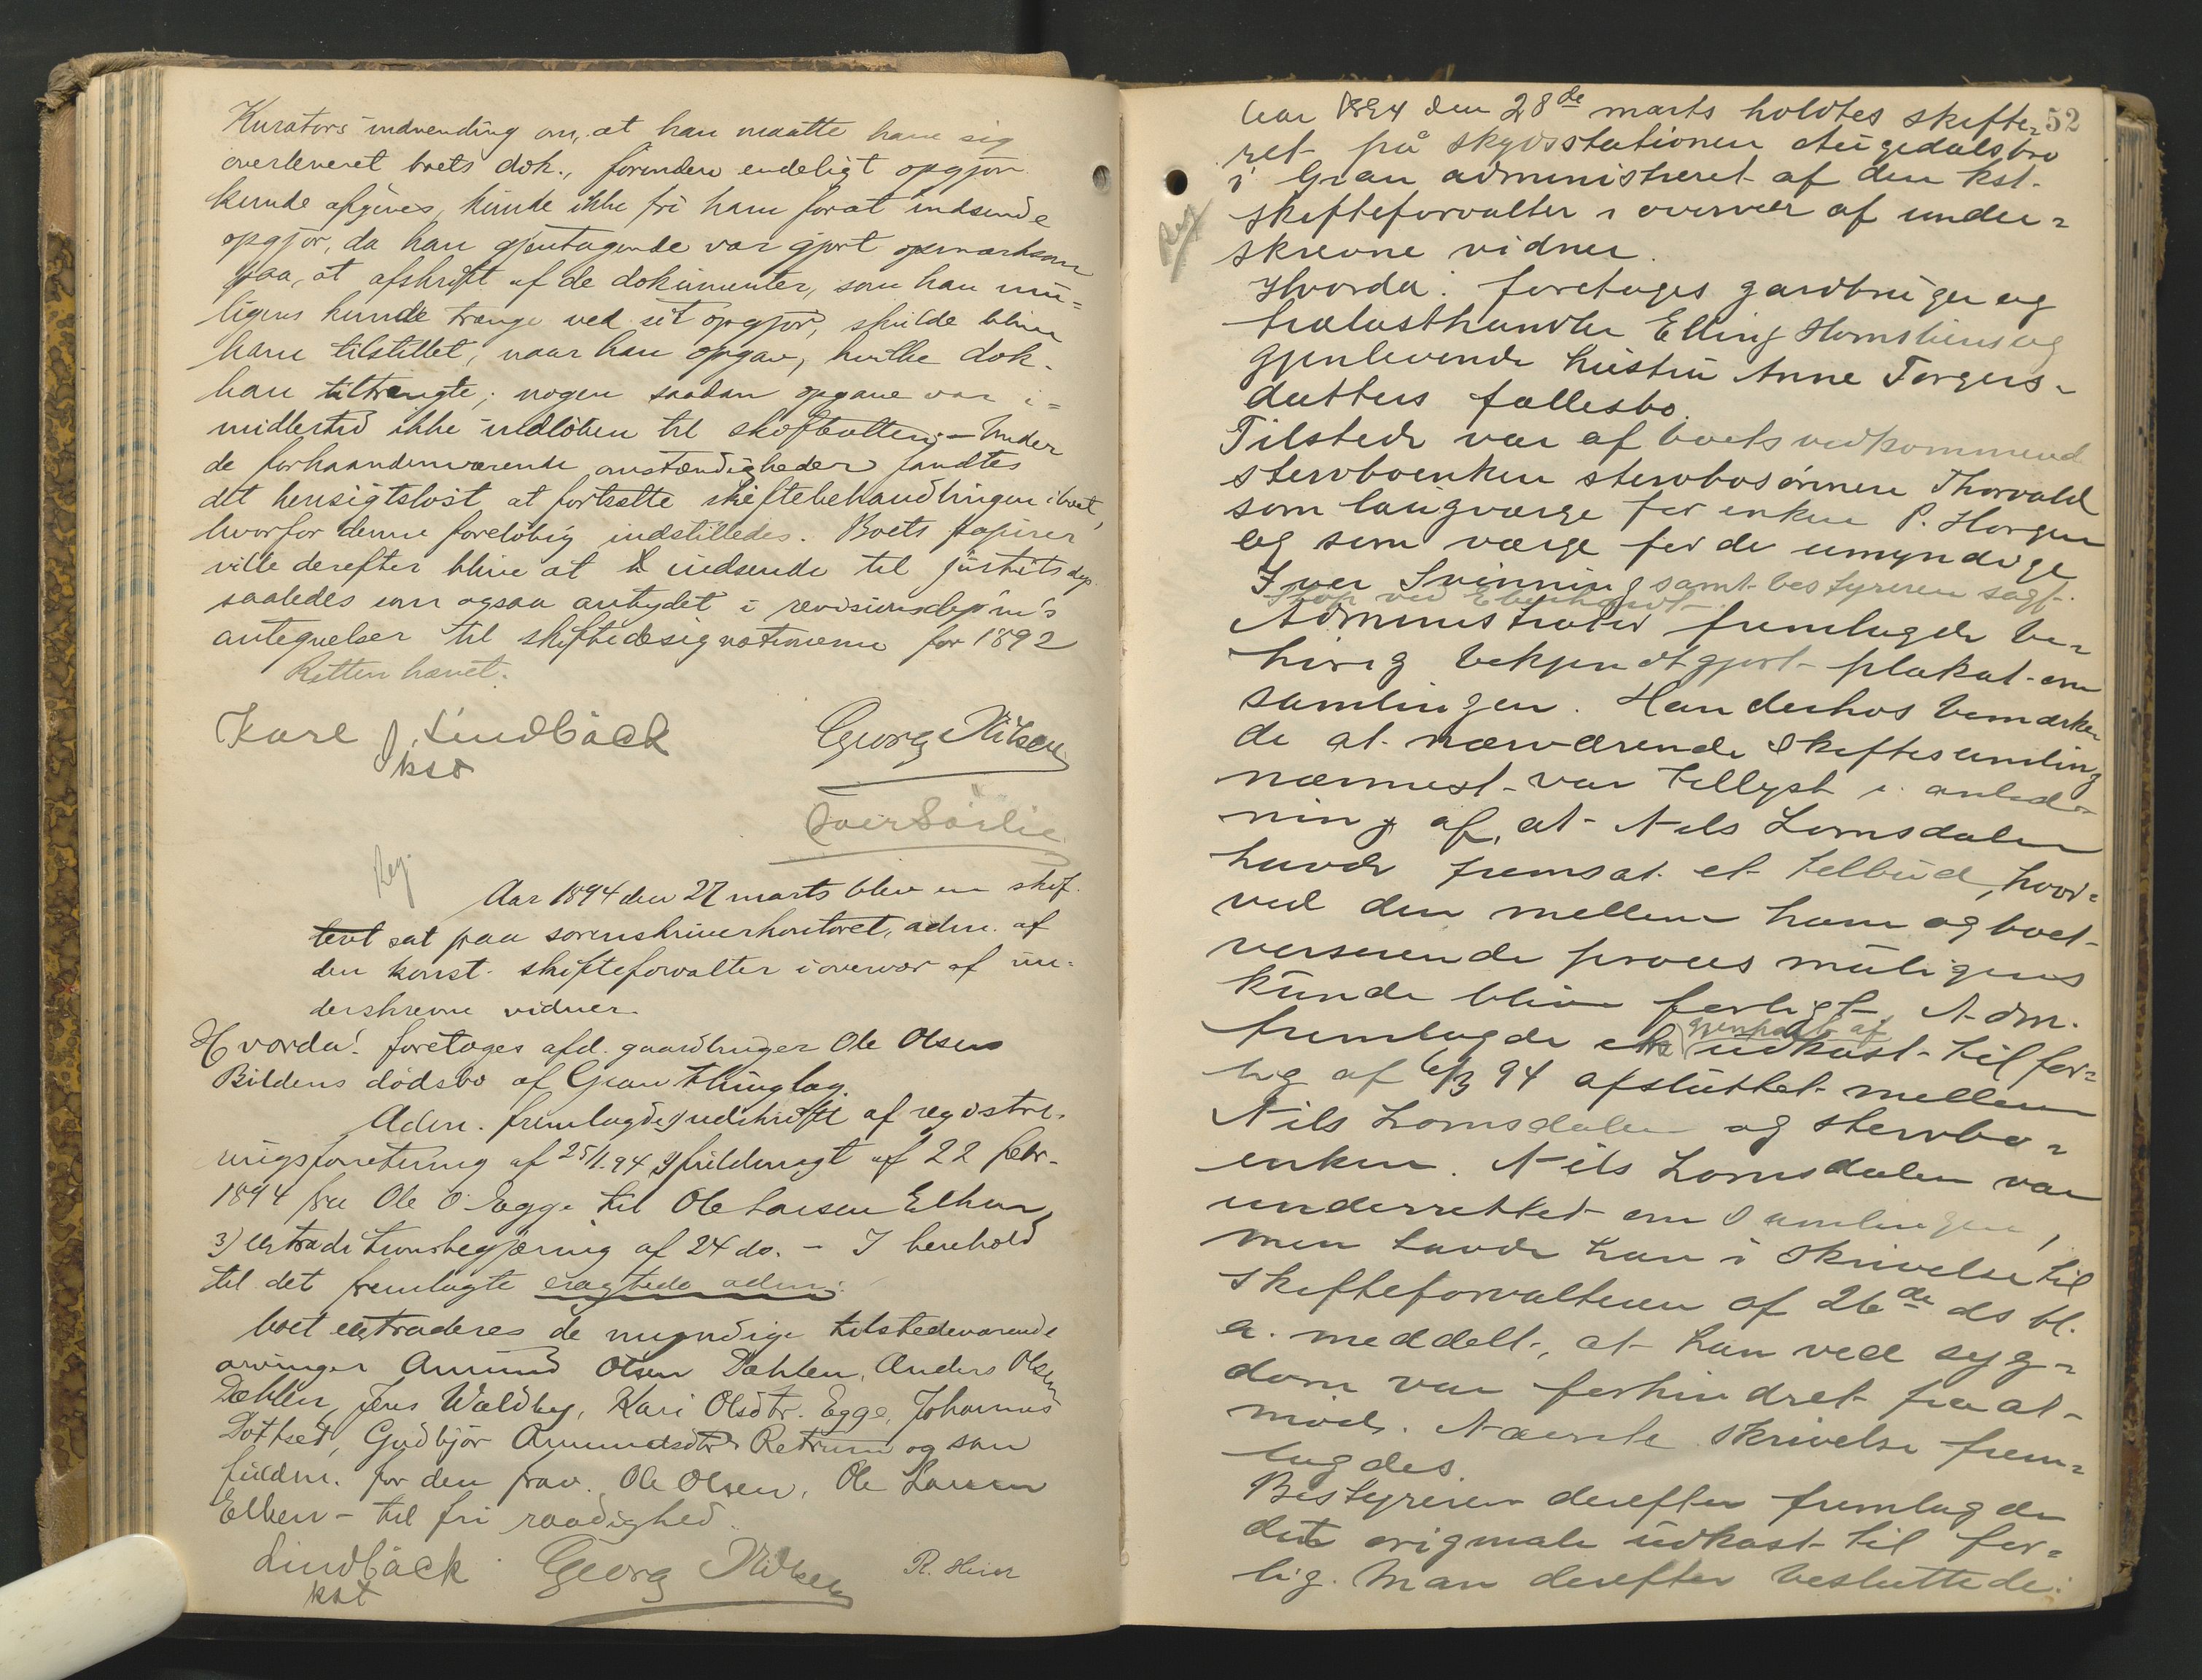 Kurators indvending om, at han maatte have sig
overleveret boets dok., forinden endeligt opgjør
kunde afgives, kunde ikke fri ham for at indsende
opgjør, da han gjentagende var gjort opmærksom
paa, at afskrift af de dokumenter, som han mu=
ligens kunde trænge ved sit opgjør, skulde blive
ham tilstillet, naar han opgav, hvilke dok.
han tiltrængte; nogen saadan opgave var i=
midlertid ikke indløben til skifteretten; – Under
de forhaandenværende omstændigheder fandtes
det hensigtsløst at fortsætte skiftebehandlingen i boet,
hvorfor denne foreløbig indstilledes. Boets papirer
ville derefter blive at indsende til justitsdep.
saaledes som ogsaa antydet i revisionsdep'm's
antegnelser til skiftedesignationerne for 1892
Retten hævet.
Karl J. Lindbäck
kst
Georg Nilsen
Iver Sørlie
Reg.
Aar 1894 den 27 marts blev en skif.
teret sat paa sorenskriverkontoret, adm. af
den konst. skifteforvalter i overvær af un=
derskrevne vidner.
Hvorda: foretoges afd. gaardbruger Ole Olsens
Bildens dødsbo af Gran thinglag.
Adm. fremlagde 1) udskrift af registre-
ringsforretning af 25/1.94 2) fuldmagt af 22 febr.
1894 fra Ole O. Egge til Ole Larsen Elken,
3) extraditionsbegjæring af 24 ds. – I henhold
til det fremlagte eragtede adm:
boet extraderes de myndige tilstedeværende
arvinger Amund Olsen Dæhlen, Anders Olsen
Dæhlen, Jens Waldby, Kari Olsdtr. Egge, Johannes
Dottset, Gudbjør Amundsdtr Retrum og som
fuldm. for den frav. Ole Olsen, Ole Larsen
Elken – til fri raadighed.
Lindbäck
kst
Georg Nilsen
R. Heier
52
Aar 1894 den 28de marts holdtes skifte=
ret på skydsstationen Augedalsbro
i Gran administreret af den kst.
skifteforvalter i overvær af under=
skrevne vidner.
Reg
Hvorda: foretoges gardbruger og
trælasthandler Elling Hornsliens og
gjenlevende hustru Anne Torgers=
datters fællesbo.
Tilstede var af boets vedkommend
stervboenken stervbosønnen Thorvald
som laugværge for enken P. Horgen
og som værge for de umyndige
Iver Svinning samt bestyreren sagf.
Thop ved Eberhardt
Administrator fremlagde be=
hørig bekjendtgjort plakat om
samlingen. Han derhos bemærke
de at nærværende skiftesamling
nærmest var tillyst i anled=
ning af, at Nils Lomsdalen
havde fremsat et tilbud, hvor=
ved den mellem ham og boet
verserende proces muligens
kunde blive forligt. Adm.
fremlagde gjenpart af udkast til for=
lig af 6/3 94 afsluttet mellem
Nils Lomsdalen og stervbo=
enken. Nils Lomsdalen var
underrettet om samlingen,
men havde han i skrivelse til
skifteforvalteren af 26de ds bl.
a. meddelt, at han ved syg=
dom var forhindret fra at
møde. Nævnte skrivelse frem=
lagdes.
Bestyreren derefter fremlagde
det originale udkast til for=
lig. Man derefter besluttede: